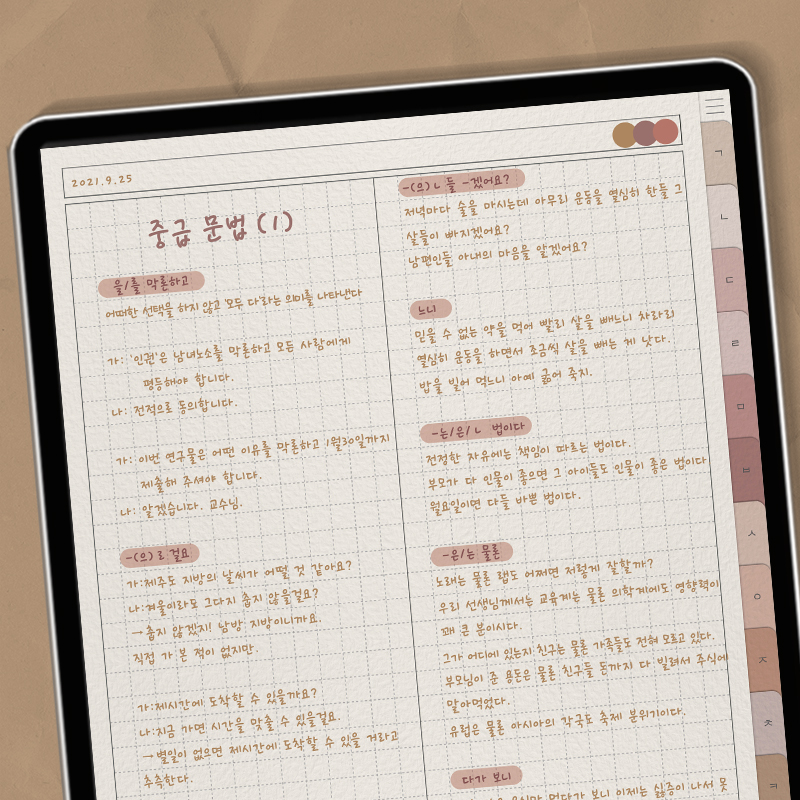 2021.9.25
중급 문법 (1)
을/를 막론하고
어떠한 선택을 하지 않고 '모두 다'라는 의미를 나타낸다
가: '인권'은 남녀노소를 막론하고 모든 사람에게
평등해야 합니다.
나: 전적으로 동의합니다.
가: 이번 연구물은 어떤 이유를 막론하고 1월30일까지
제출해 주셔야 합니다.
나: 알겠습니다. 교수님.
-(으)ㄹ 걸요
가:제주도 지방의 날씨가 어떨 것 같아요?
나:겨울이라도 그다지 춥지 않을걸요?
→춥지 않겠지! 남방 지방이니까요.
직접 가 본 적이 없지만.
가:제시간에 도착할 수 있을까요?
나:지금 가면 시간을 맞출 수 있을걸요.
→별일이 없으면 제시간에 도착할 수 있을 거라고
추측한다.
-(으)ㄴ 들 -겠어요?
저녁마다 술을 마시는데 아무리 운동을 열심히 한들 그
살들이 빠지겠어요?
남편인들 아내의 마음을 알겠어요?
느니
믿을 수 없는 약을 먹어 빨리 살을 빼느니 차라리
열심히 운동을 하면서 조금씩 살을 빼는 게 낫다.
밥을 빌어 먹느니 아예 굶어 죽지.
-는/은/ㄴ 법이다
진정한 자유에는 책임이 따르는 법이다.
부모가 다 인물이 좋으면 그 아이들도 인물이 좋은 법이다
월요일이면 다들 바쁜 법이다.
-은/는 물론
노래는 물론 랩도 어쩌면 저렇게 잘할까?
우리 선생님께서는 교육계는 물론 의학계에도 영향력이
꽤 큰 분이시다.
그가 어디에 있는지 친구는 물론 가족들도 전혀 모르고 있다.
부모님이 준 용돈은 물론 친구들 돈까지 다 빌려서 주식에
말아먹었다.
유럽은 물론 아시아의 각국도 축제 분위기이다.
다가 보니
먹다가 보니 이제는 싫증이 나서 못
ㄱ
ㄴ
ㄷ
ㄹ
ㅁ
ㅂ
ㅅ
ㅇ
ㅈ
ㅊ
ㅋ